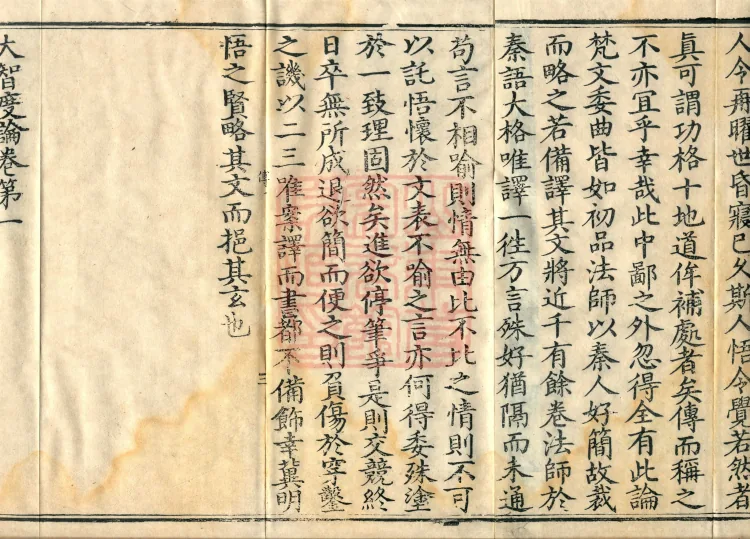 人令再曜世昏寢已久斯人悟令覺若然者
真可謂功格十地道侔補處者矣傳而稱之
不亦宜乎幸哉此中鄙之外忽得全有此論
梵文委曲皆如初品法師以秦人好簡故裁
而略之若備譯其文將近千有餘卷法師於
秦語大格唯譯一往万言殊好猶隔而未通
苟言不相喻則情無由比不比之情則不可
以託悟懷於文表不喻之言亦何得委殊塗
於一致理固然矣進欲停筆爭是則交競終
日卒無所成退欲簡而便之則負傷於穿鑿
之譏以二三唯案譯而書都不備飾幸冀明
三
悟之賢略其文而挹其玄也
大智度論卷第一